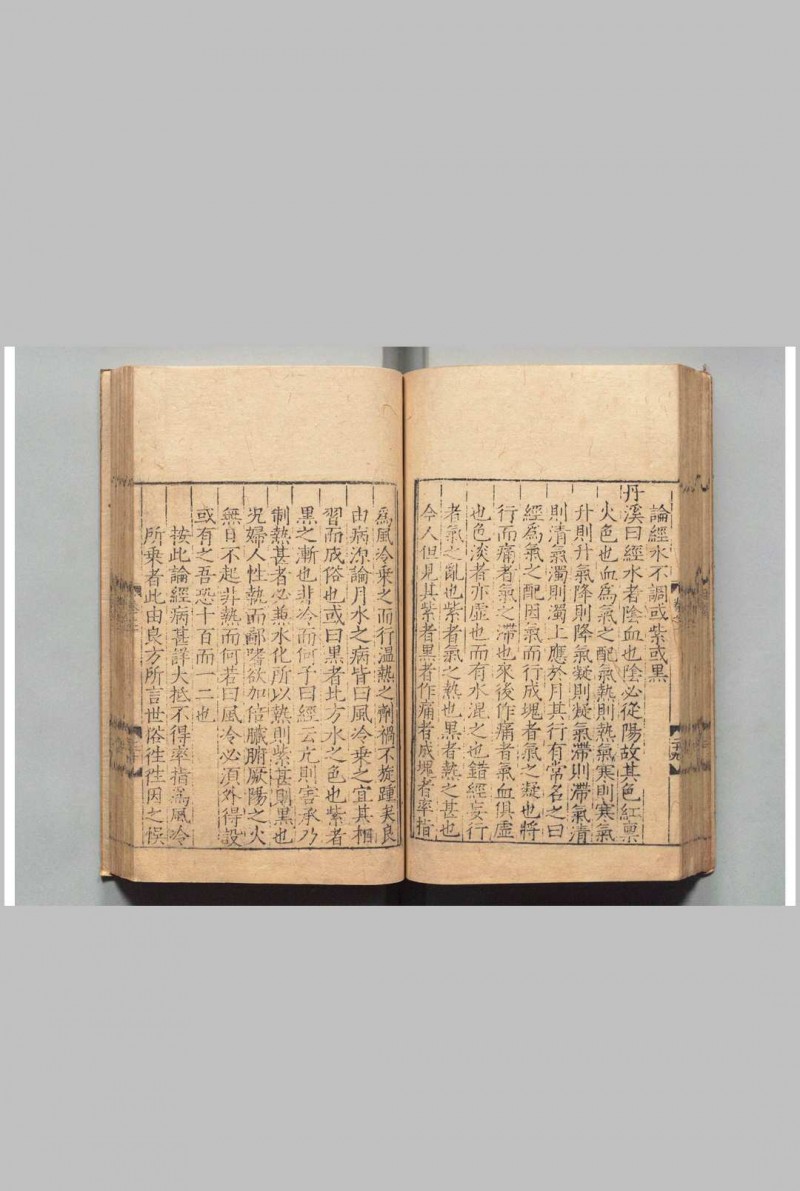 論經水不調或紫或黑
丹溪曰經水者陰血也陰必從陽故其色紅稟
火色也血爲氣之配氣熱則熱氣寒則寒氣
升則升氣降則降氣凝則凝氣滯則滯氣清
則清氣濁則濁上應於月其行有常名之曰
經爲氣之配因氣而行成塊者氣之凝也將
行而痛者氣之滯也來後作痛者氣血俱虛
也色淡者亦虛也而有水混之也錯經妄行
者氣之亂也紫者氣之熱也黑者熱之甚也
今人但見其紫者黑者作痛者成塊者率指
爲風冷乘之而行溫熱之劑禍不旋踵矣良
由病源論月水之病皆曰風冷乘之宜其相
習而成俗也或曰黑者北方水之色也紫者
黑之漸也非冷而何予曰經云亢則害承乃
制熱甚者必兼水化所以熱則紫甚則黑也
况婦人性執而鄙嗜欲加倍臟腑厥陽之火
無日不起非熱而何若曰風冷必須外得設
或有之吾恐十百而一二也
按此論經病甚詳大抵不得率指爲風冷
所乘者此由良方所言世俗徃徃因之悮